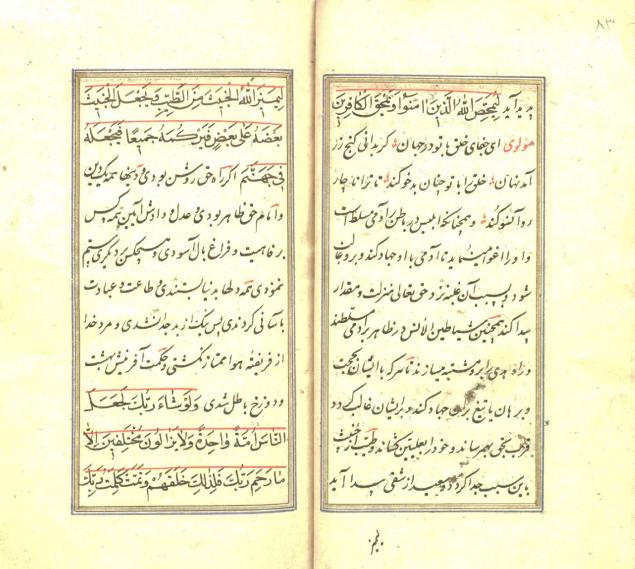 ۸۳
پدید آید لِیُمَحِّصَ اللهُ الَّذینَ اٰمَنُوا وَیَمْحَقَ الْکافِرینَ
مولوی ای جفای خلق با تو در جهان گر بدانی گنج زر
آمد نهان خلق را با تو چنان بدخو کنند تا ترا ناچار
رو آنسو کنند و همچنانکه ابلیس در باطن بر آدمی مسلط است
و او را اغوا مینماید تا آدمی با او جهاد کند و برو غالب
شود و بسبب آن غلبه نزد حق تعالی منزلت و مقدار
پیدا کند همچنین شیاطین الانس در ظاهر بر آدمی مسلطند
و راه حق را برو مشتبه میسازند تا هر که با ایشان بحجت
و برهان یا تیغ بران جهاد کند و بر ایشان غالب گردد
قرب حق بهم رساند و خود را بعلیین کشاند و طیب از خبیث
باین سبب جدا گردد و سعید از شقی پیدا آید
لیمیز
لِیَمیزَ اللهُ الْخَبیثَ مِنَ الطَّیِّبِ وَیَجْعَلَ الْخَبیثَ
بَعْضَهُ عَلیٰ بَعْضٍ فَیَرْکُمَهُ جَمیعًا فَیَجْعَلَهُ
فی جَهَنَّمَ اگر راه حق روشن بودی و اینجا همه یکدین
و امام حق ظاهر بودی و عدل و دادش آیین همه کس
بر فاهیت و فراغ بال آسودی و هیچکس بر دیگری ستم
ننمودی همه دلها بدنیا بستندی و طاعت و عبادت
باسانی کردندی پس نیک از بد جدا نشدی و مرد خدا
از فریفته هوا ممتاز نگشتی و حکمت آفرینش بهشت
و دوزخ باطل شدی وَلَوْ شاءَ رَبُّکَ لَجَعَلَ
النّاسَ اُمَّةً واحِدَةً وَلا یَزالُونَ مُخْتَلِفینَ اِلّا
مَنْ رَحِمَ رَبُّکَ وَلِذٰلِکَ خَلَقَهُمْ وَتَمَّتْ کَلِمَةُ رَبِّکَ